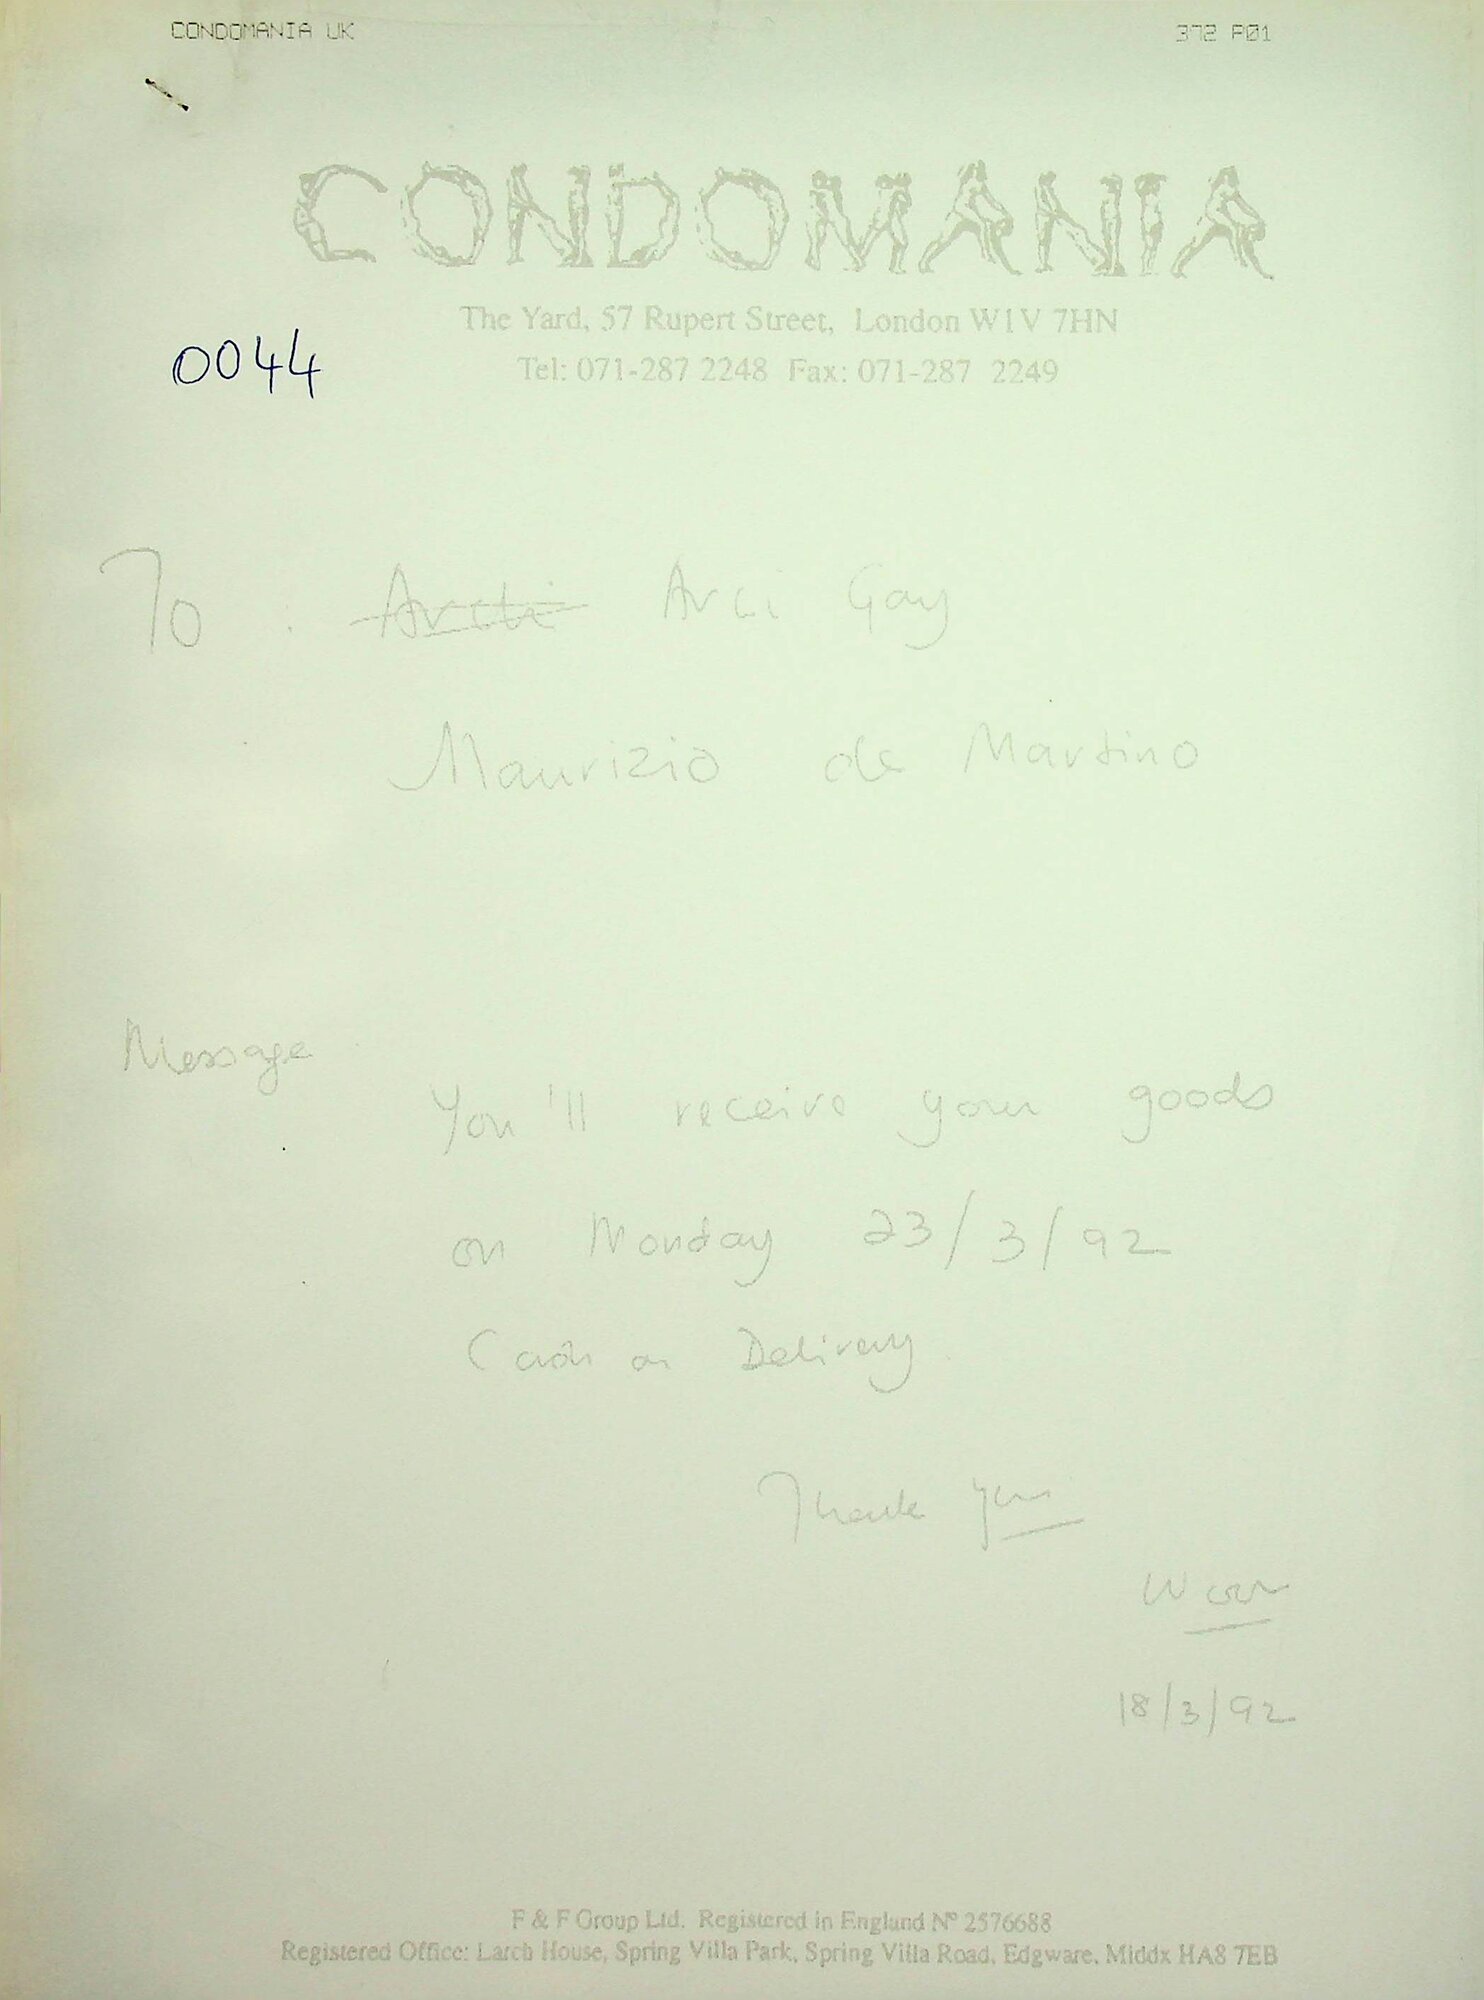 CONDOMANIA UK 372 P01
CONDOMANIA
The Yard, 57 Rupert Street, London W1V 7HN
0044
Tel: 071-287 2248 Fax: 071-287 2249
To : Arcti Arci Gay
Maurizio de Martino
Message
You'll receive your goods
on Monday 23/3/92
Cash on Delivery
Thank you
18/3/92
F & F Group Ltd. Registered in England Nº 2576688
Registered Office: Larch House, Spring Villa Park, Spring Villa Road, Edgware, Middx HA8 7EB